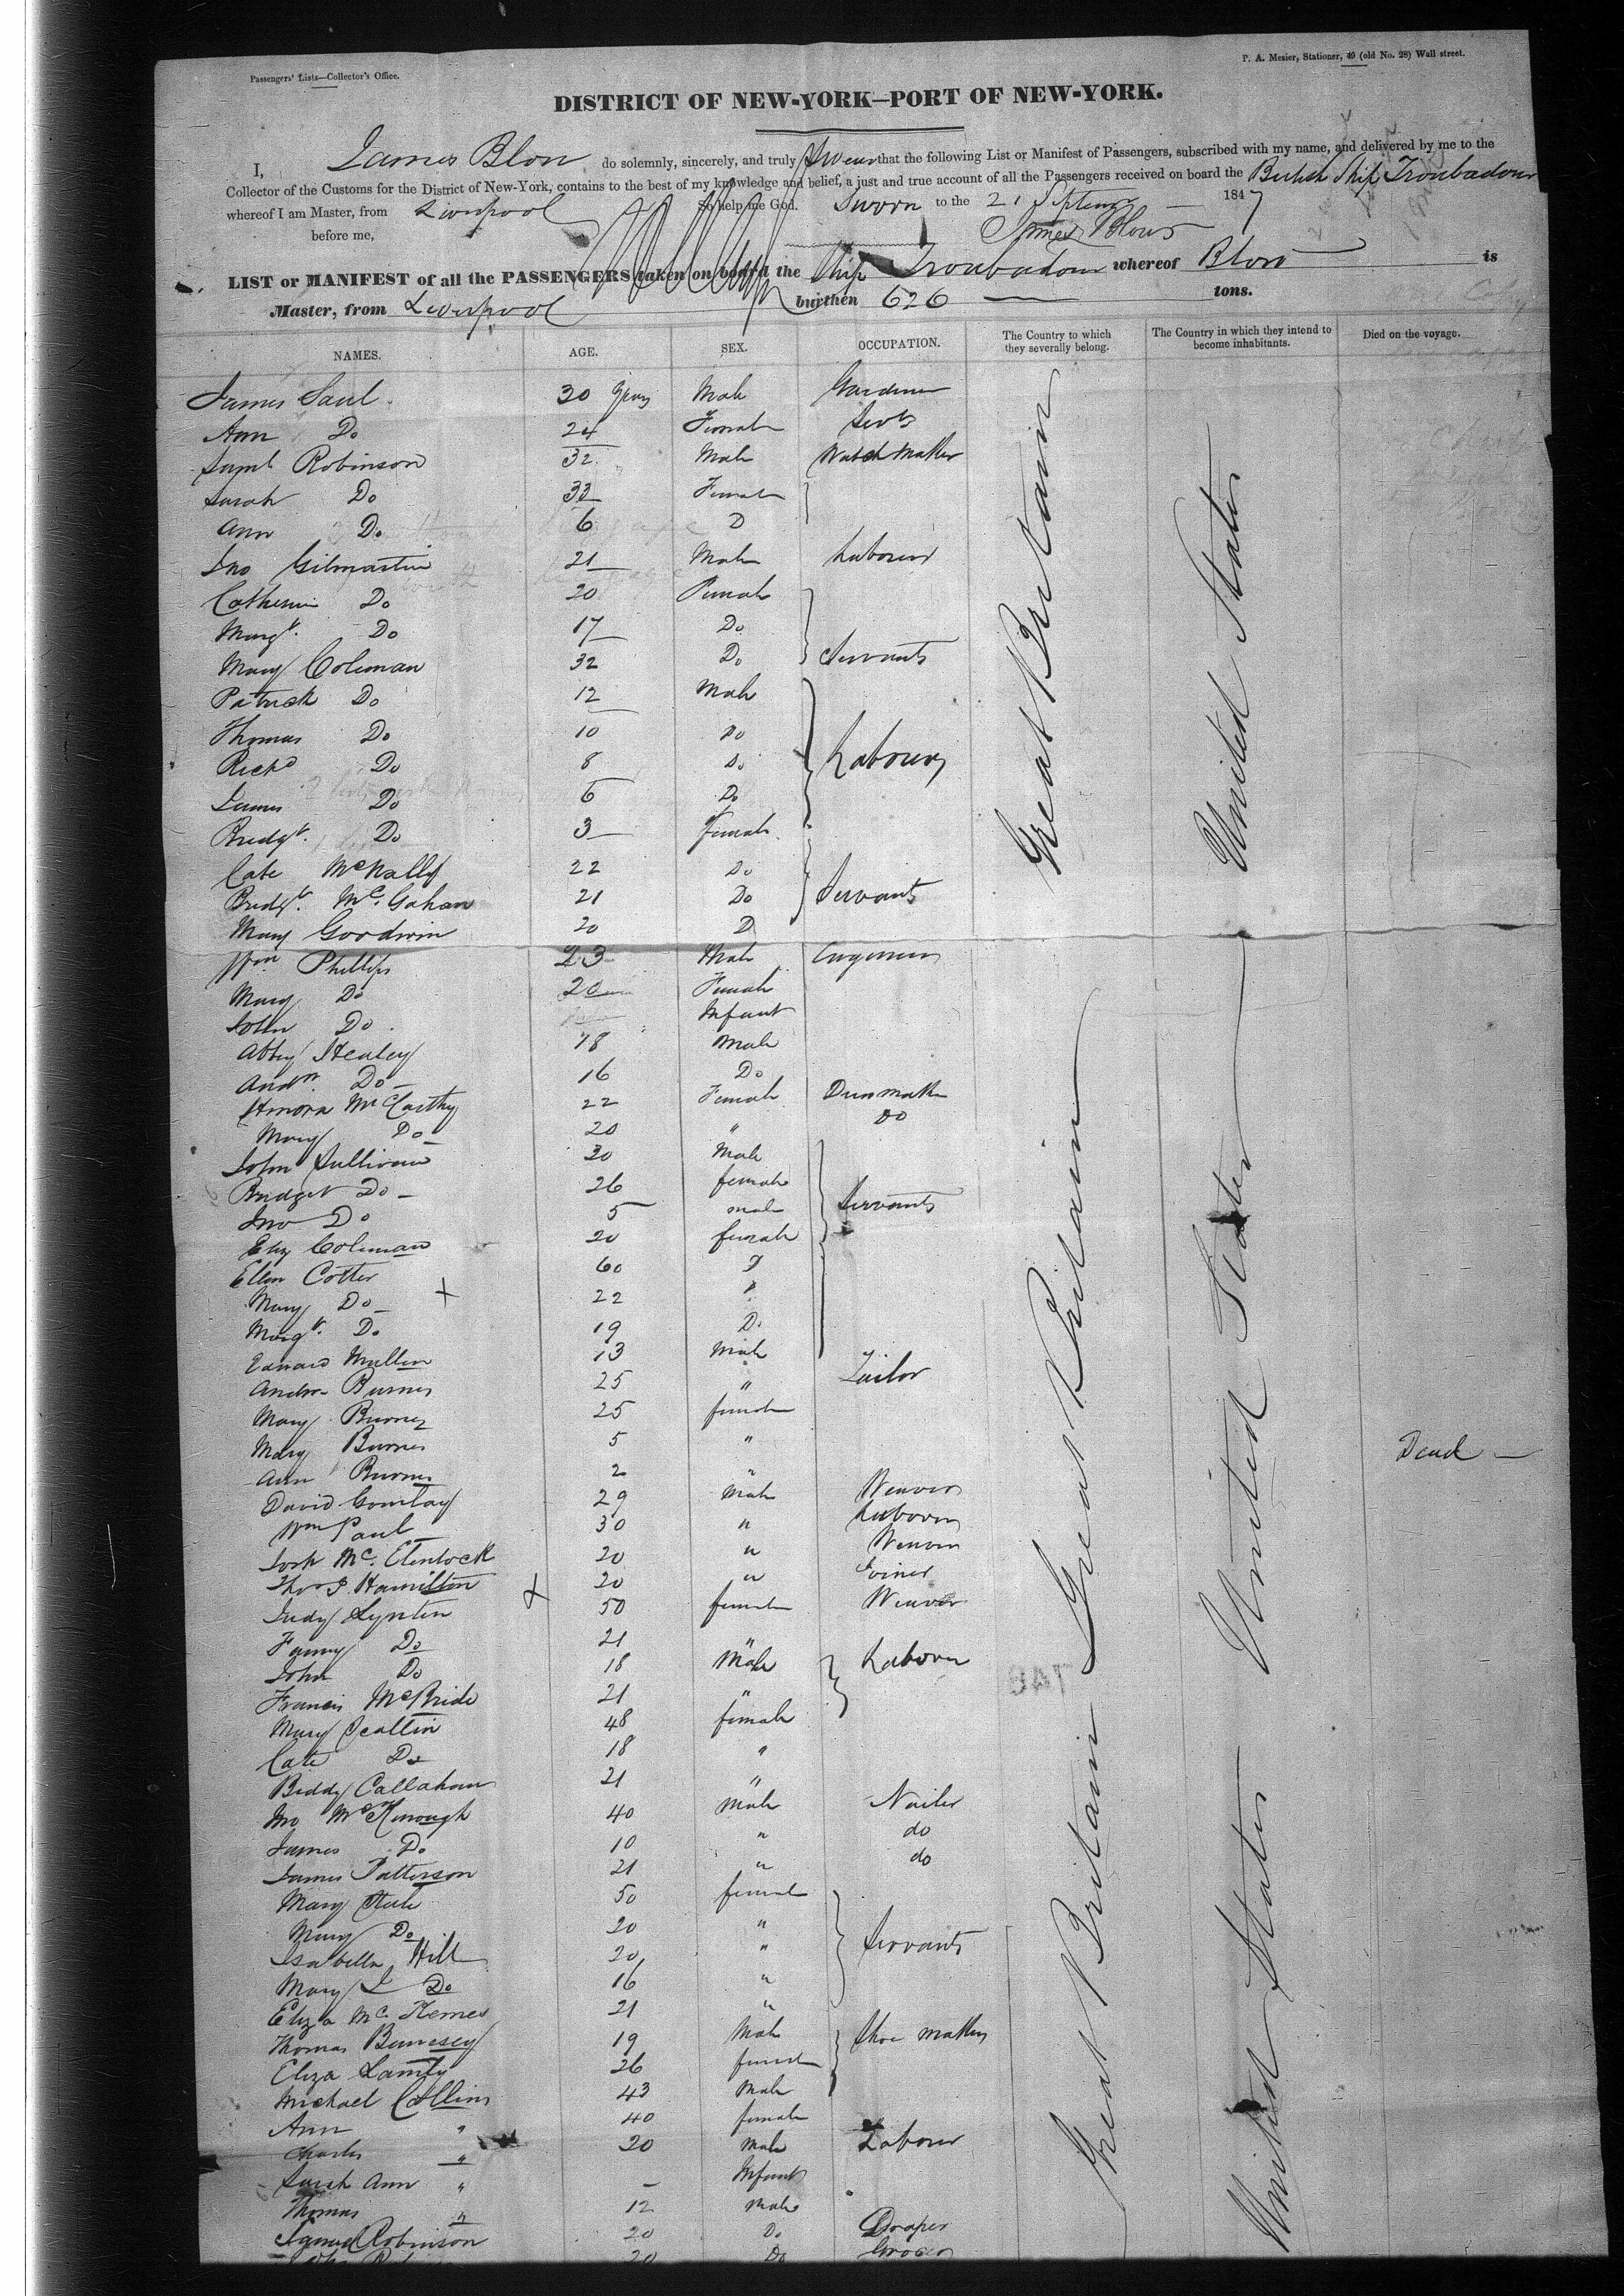 Passengers' Lists—Collector's Office.
P. A. Mesier, Stationer, 49 (old No. 28) Wall street.
DISTRICT OF NEW-YORK—PORT OF NEW-YORK.
I, James Blow do solemnly, sincerely, and truly Swear that the following List or Manifest of Passengers, subscribed with my name, and delivered by me to the
Collector of the Customs for the District of New-York, contains to the best of my knowledge and belief, a just and true account of all the Passengers received on board the British Ship Troubadour
whereof I am Master, from Liverpool So help me God. Sworn to the 21 Septem 1847
before me, James Blow
LIST or MANIFEST of all the PASSENGERS taken on board the Ship Troubadour whereof Blow is
Master, from Liverpool burthen 626 tons.
NAMES. AGE. SEX. OCCUPATION. The Country to which they severally belong. The Country in which they intend to become inhabitants. Died on the voyage.
James Saul 30 years Male Gardener
Ann Do 24 Female Servt
Saml Robinson 32 Male Watch Maker
Sarah Do 33 Female
Ann Do 6 D
Jno Gilmartin 21 Male Labourer
Catherine Do 20 Female
Margt. Do 17 Do
Mary Coleman 32 Do Servants
Patrick Do 12 Male
Thomas Do 10 Do
Richd Do 8 Do Labourers
James Do 6 Do
Bridgt. Do 3 Female
Cate McNally 22 Do
Bridgt. Mc.Gahan 21 Do Servants
Mary Goodwin 20 D
Great Britain
United States
Wm Phillips 23 Male Engineer
Mary Do 20 Female
John Do Infant
Abby Healey 18 Male
Andw. Do 16 Do
Honora McCarthy 22 Female Dressmaker
Mary Do 20 " Do
John Sullivan 30 Male
Bridget Do 26 female
Jno Do 5 male Servants
Eliz Coleman 20 female
Ellen Cotter 60 D
Mary Do 22
Margt. Do 19 D.
Edward Mullen 13 Male
Andw Burns 25 " Tailor
Mary Burns 25 female
Mary Burns 5 "
Ann Burns 2 " Dead
David Gourlay 29 Male Weaver
Wm Paul 30 " Labourer
Great Britain
United States
20 " Weaver
Thos Hamilton 20 " Joiner
Judy 50 female Weaver
Fanny Do 21 "
John Do 18 Male Labourer
Francis McBride 21 "
Mary Scallin 48 female
Cate Do 18 "
Biddy Callahan 21 "
Jno 40 Male Nailer
James Do 10 " do
James Patterson 21 " do
Mary 50 female
Mary Do 20 "
Isabella Hill 20 " Servants
Mary J Do 16 "
Eliza Mc 21 "
Thomas 19 Male Shoe maker
Eliza 26 female
Michael Collins 43 Male
Ann " 40 female
Charles " 20 Male Labourer
Sarah Ann " — Infant
Thomas " 12 Male
Samuel Robinson 20 Do Draper
20 Do Grocer
Great Britain
United States